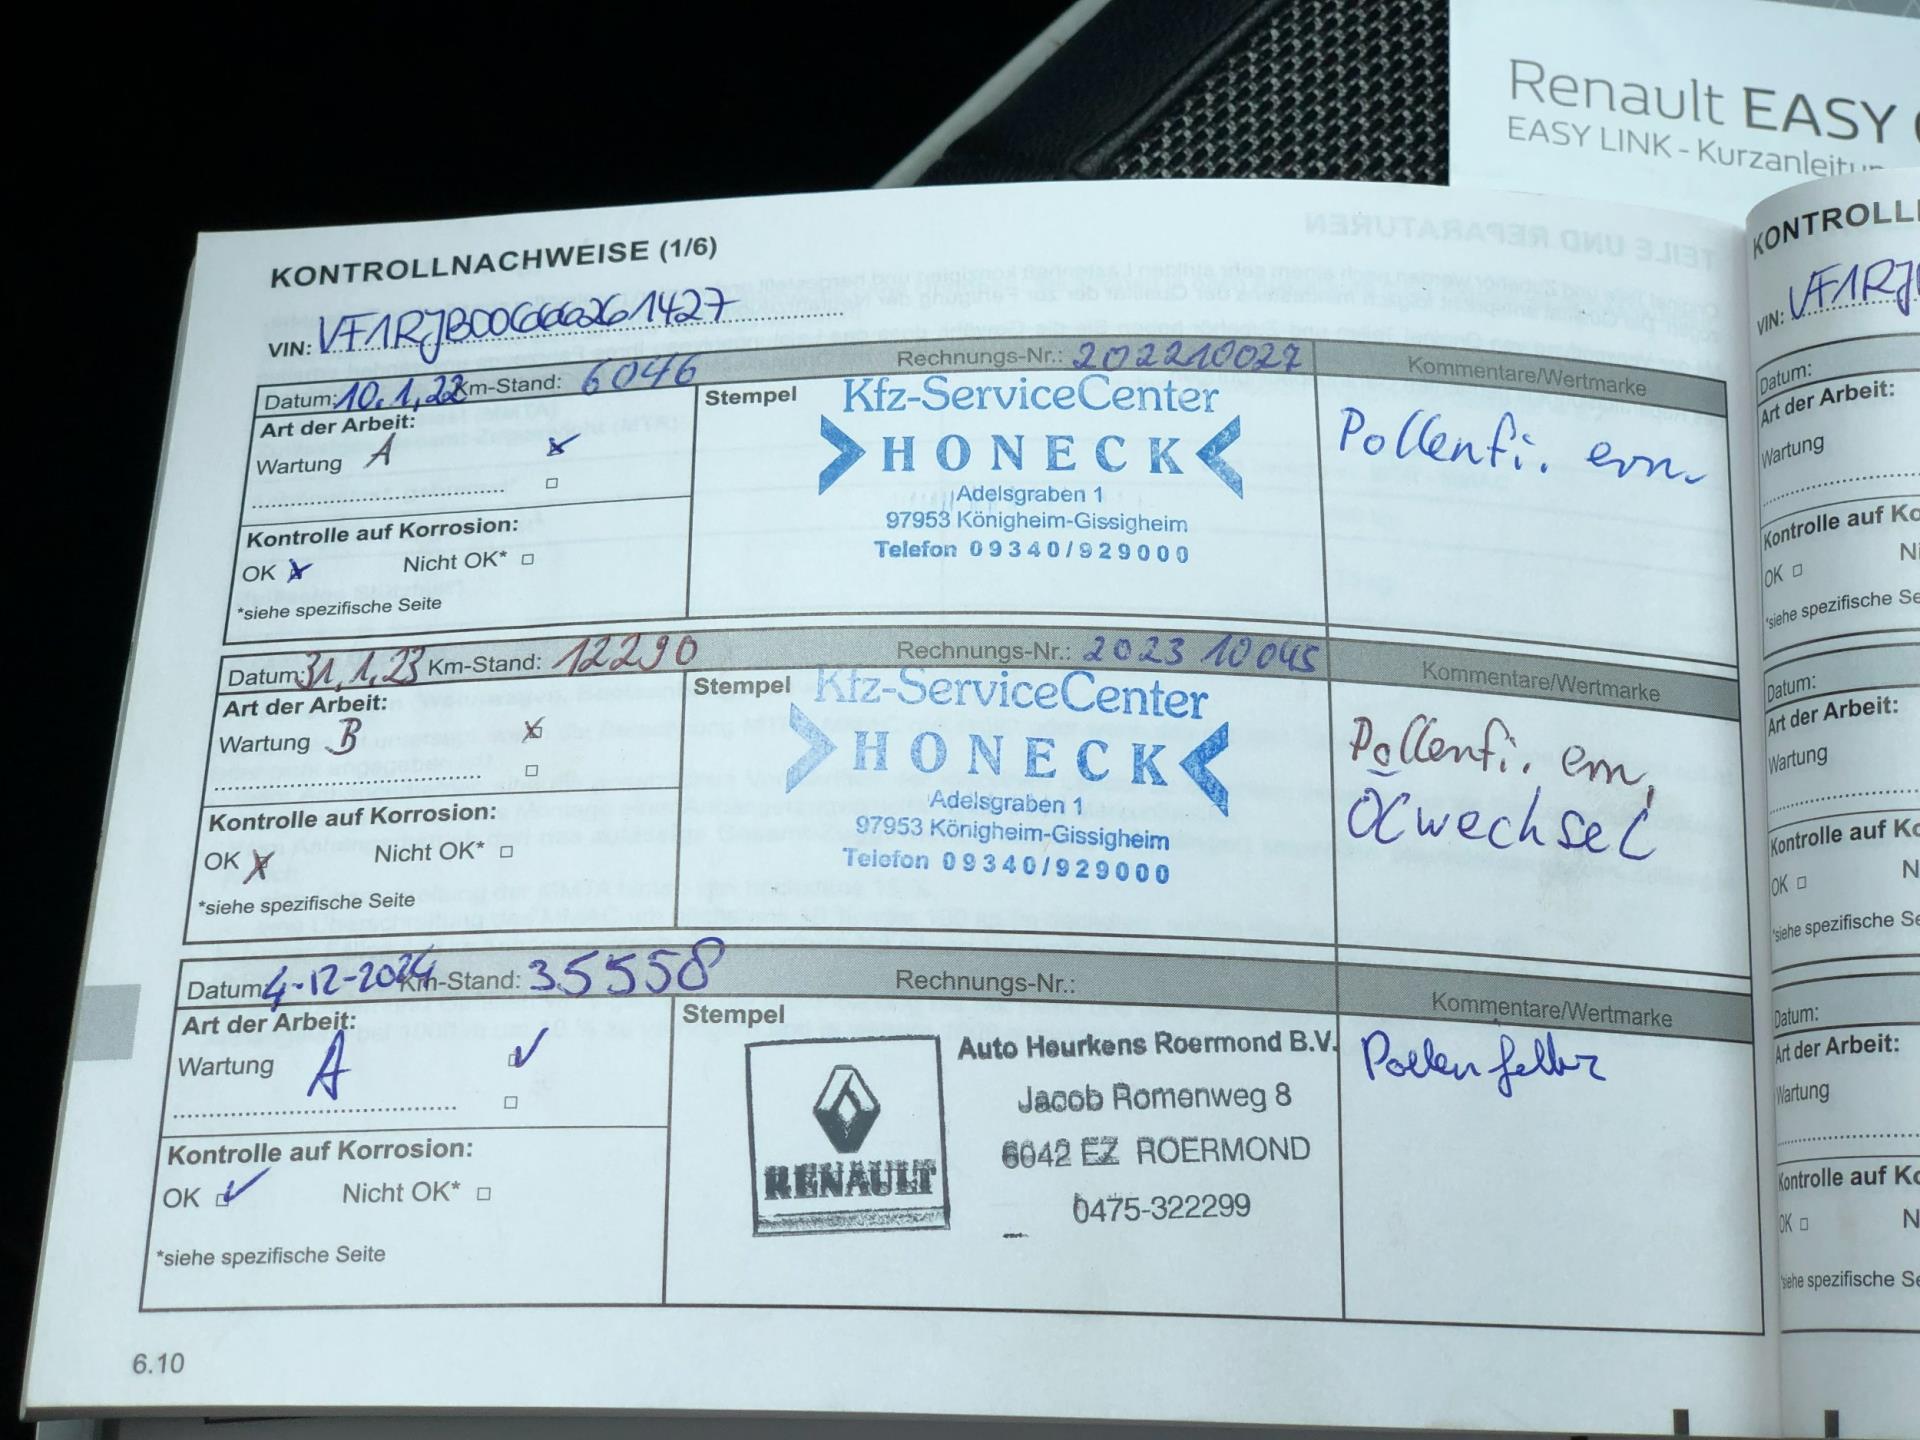 Renault EASY
EASY LINK - Kurzanleitu
KONTROLLNACHWEISE (1/6)
VIN: VF1RJB00666261427
Datum: 10.1.22 Km-Stand: 6046 Rechnungs-Nr.: 202210027 Kommentare/Wertmarke
Art der Arbeit:
Wartung A
Kontrolle auf Korrosion:
OK Nicht OK*
*siehe spezifische Seite
Stempel
Kfz-ServiceCenter
HONECK
Adelsgraben 1
97953 Königheim-Gissigheim
Telefon 09340/929000
Pollenfi. ern.
Datum: 31.1.23 Km-Stand: 12290 Rechnungs-Nr.: 202310045 Kommentare/Wertmarke
Art der Arbeit:
Wartung B
Kontrolle auf Korrosion:
OK Nicht OK*
*siehe spezifische Seite
Stempel
Kfz-ServiceCenter
HONECK
Adelsgraben 1
97953 Königheim-Gissigheim
Telefon 09340/929000
Pollenfi. ern,
Ölwechsel
Datum: 4-12-2024 Km-Stand: 35558 Rechnungs-Nr.: Kommentare/Wertmarke
Art der Arbeit:
Wartung A
Kontrolle auf Korrosion:
OK Nicht OK*
*siehe spezifische Seite
Stempel
RENAULT
Auto Heurkens Roermond B.V.
Jacob Romenweg 8
6042 EZ ROERMOND
0475-322299
6.10
KONTROLL
VIN: VF1RJ
Datum:
Art der Arbeit:
Wartung
Kontrolle auf Ko
OK
*siehe spezifische Se
Datum:
Art der Arbeit:
Wartung
Kontrolle auf Ko
OK N
*siehe spezifische Se
Datum:
Art der Arbeit:
Wartung
Kontrolle auf Ko
OK N
*siehe spezifische Se